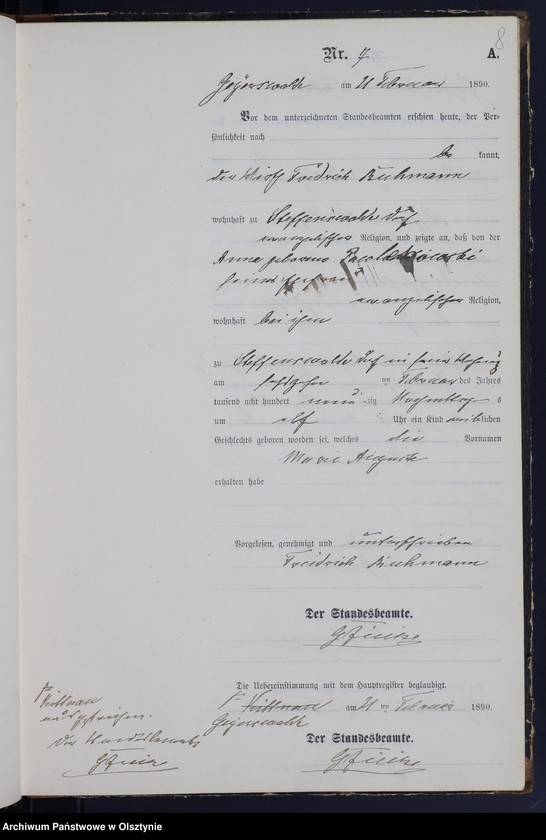 8
Nr. 7 A.
Geyerswalde am 21 Februar 1890.
Vor dem unterzeichneten Standesbeamten erschien heute, der Per-
sönlichkeit nach
be kannt,
der Wirth Friedrich Kuhmann
wohnhaft zu Steffenswalde Dorf
evangelischer Religion, und zeigte an, daß von der
Anna geborene
seiner Ehefrau
evangelischer Religion,
wohnhaft bei ihm
zu Steffenswalde Dorf in seiner Wohnung
am ten Februar des Jahres
tausend acht hundert neun zig Nachmittags
um elf Uhr ein Kind weiblichen
Geschlechts geboren worden sei, welches die Vornamen
Marie Auguste
erhalten habe
Vorgelesen, genehmigt und unterschrieben
Friedrich Kuhmann
Der Standesbeamte.
Die Uebereinstimmung mit dem Hauptregister beglaubigt.
am 21 ten Februar 1890.
Geyerswalde
Der Standesbeamte.
Der Standesbeamte
Archiwum Państwowe w Olsztynie